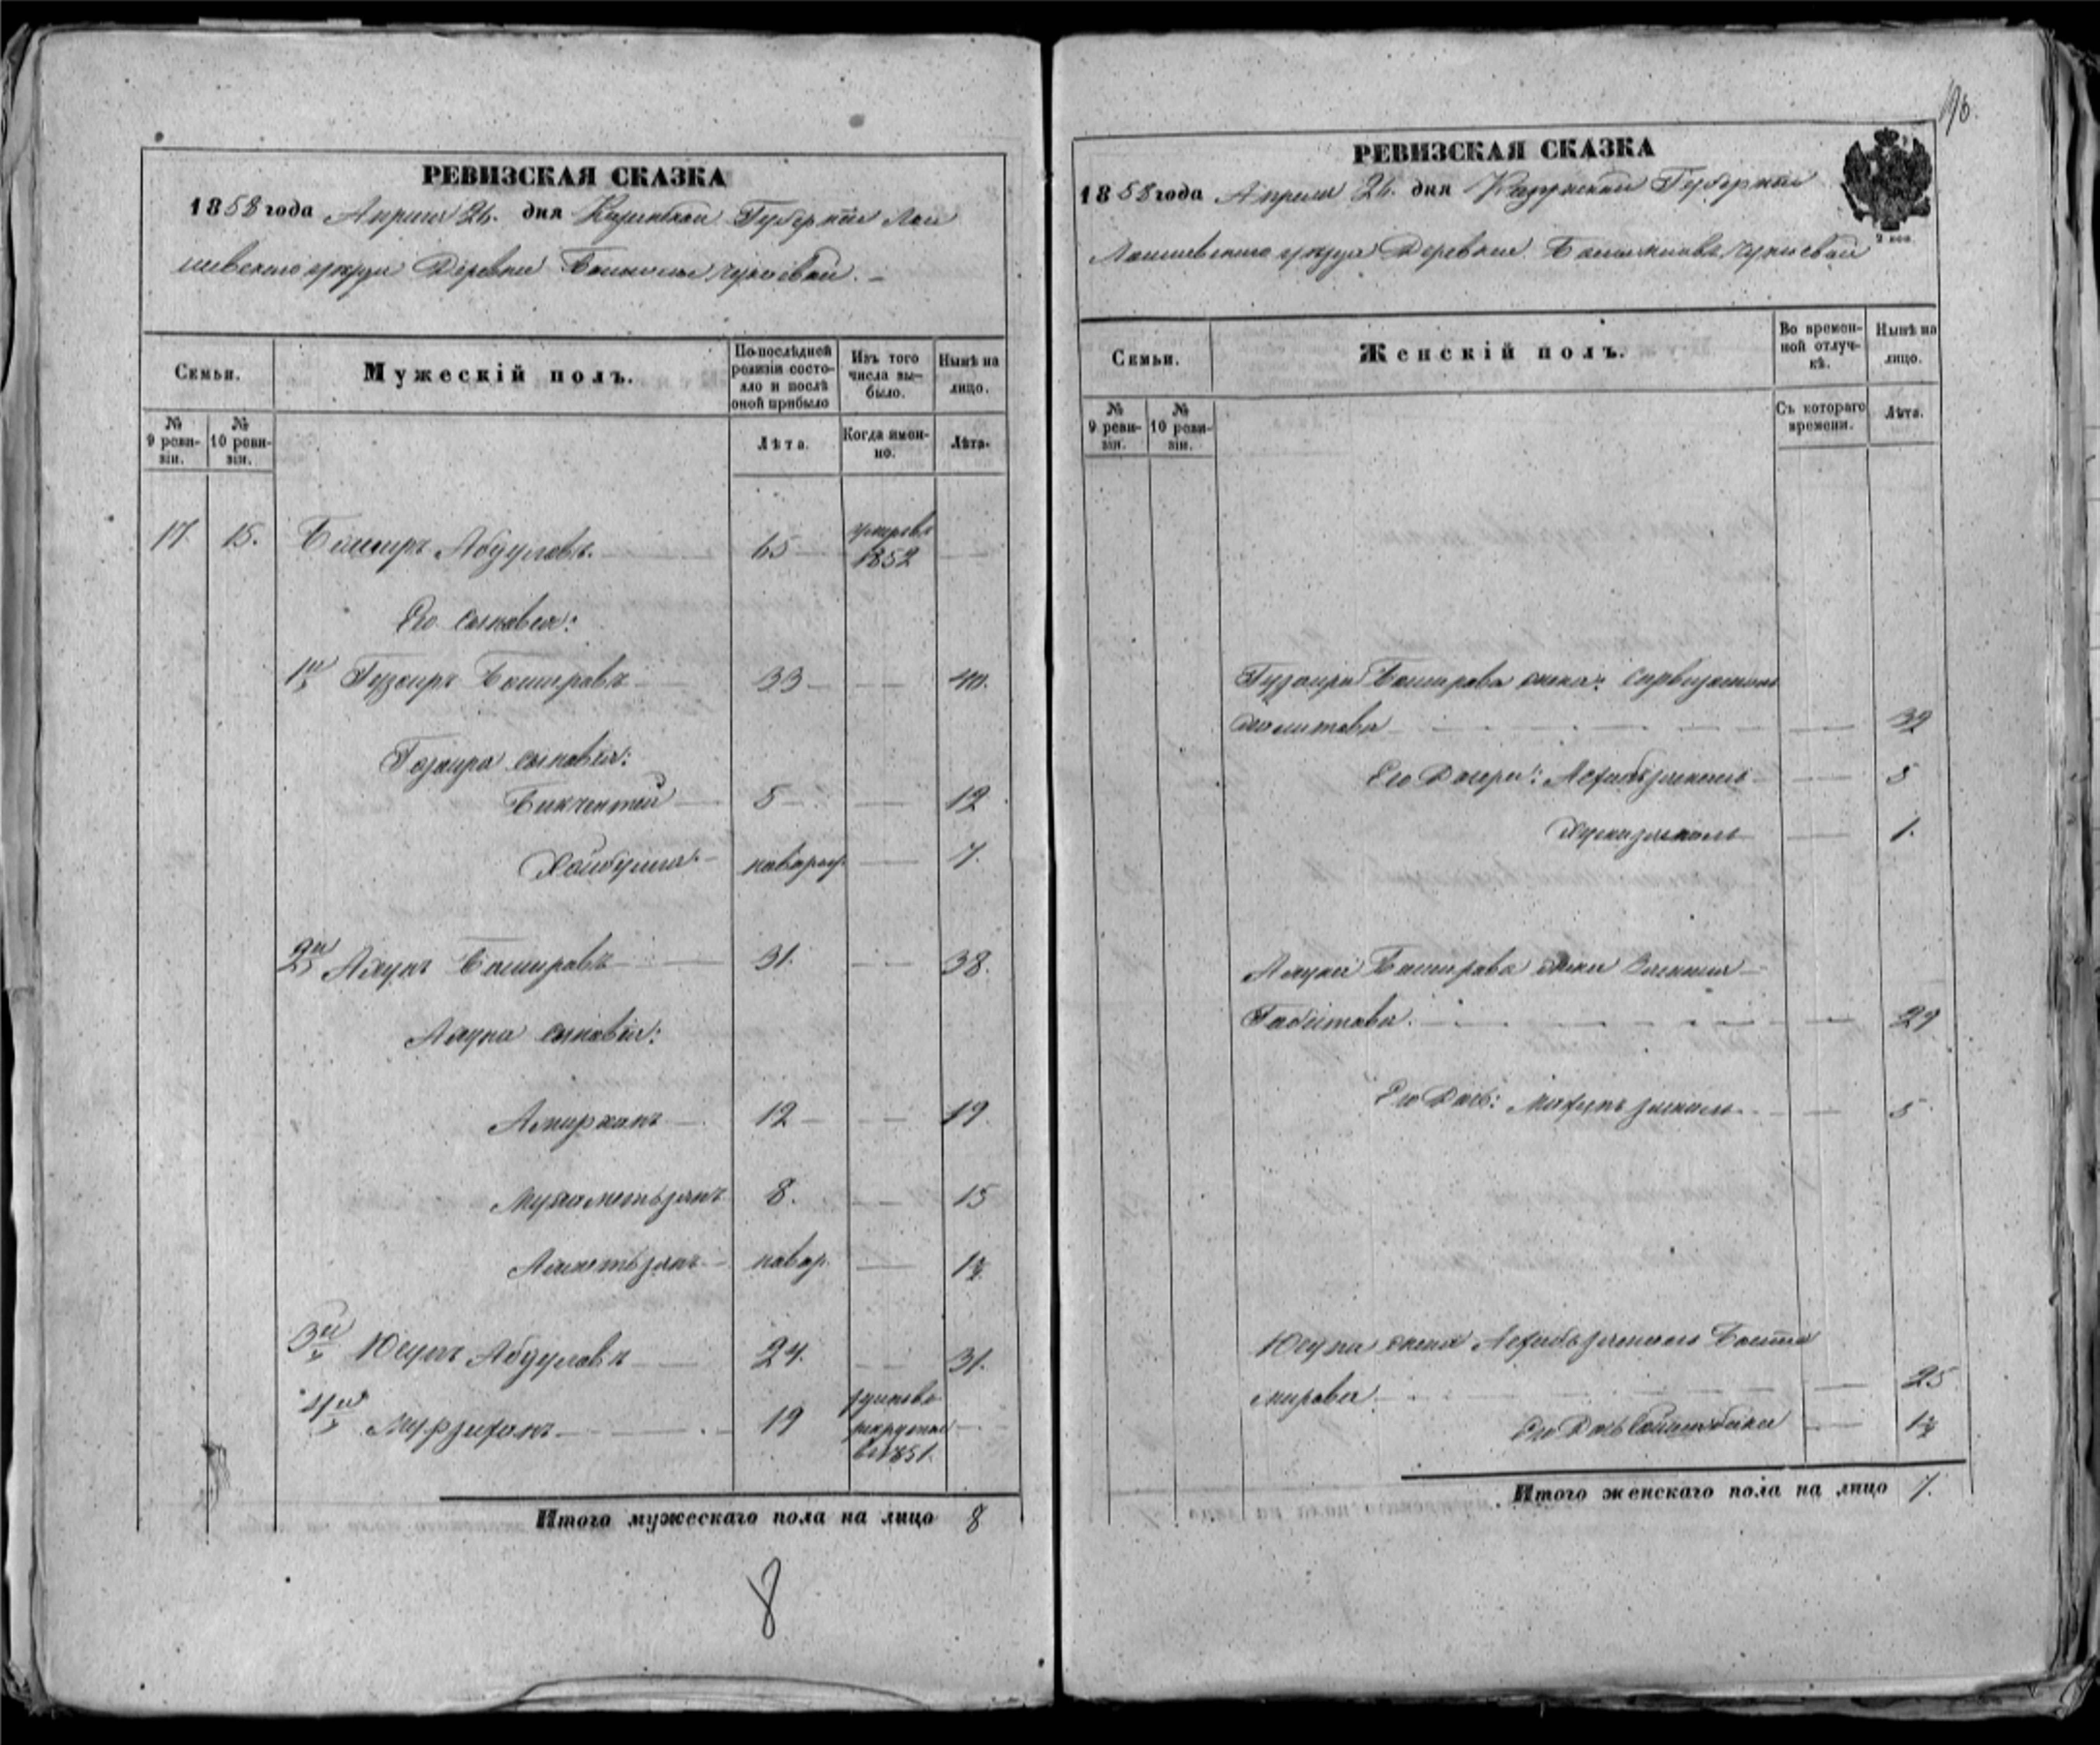 РЕВИЗСКАЯ СКАЗКА
1858 года Апреля 26. дня Казанской Губерніи Лаи
шевского уѣзда Деревни
Семьи.
Мужескій полъ.
По послѣдней ревизіи состояло и послѣ оной прибыло
Изъ того числа выбыло.
Нынѣ на лицо.
№ 9 ревизіи.
№ 10 ревизіи.
Лѣта.
Когда именно.
Лѣта.
17 15. Баширъ Абдуловъ. 65 умеръ въ 1852
Его сыновья:
1й Гузаиръ Башировъ 33 40.
Гозаира сыновья:
Бикчентей 5 12
Хайбулла новорож. 7.
2й Аюпъ Башировъ 31. 38.
Аюпа сыновья:
Амирханъ 12 19
Мухаметьзянъ 8. 15
Ахметьзянъ новор. 1½
3й Юсупъ Абдуловъ 24. 31.
4й 19 рекруты въ 1851.
Итого мужескаго пола на лицо 8
8
196.
РЕВИЗСКАЯ СКАЗКА
2 коп.
1858 года Апреля 26. дня Казанской Губерніи
Лаишевского уѣзда Деревни
Семьи.
Женскій полъ.
Во временной отлучкѣ.
Нынѣ на лицо.
№ 9 ревизіи.
№ 10 ревизіи.
Съ котораго времени.
Лѣта.
Гузаира Баширова жена:
32
Его Дочери: 5
1.
Аюпа Баширова жена
Габитова. 29
Его Дочь: 5
Юсупа жена
25
Его Дочь 1½
Итого женскаго пола на лицо 7.